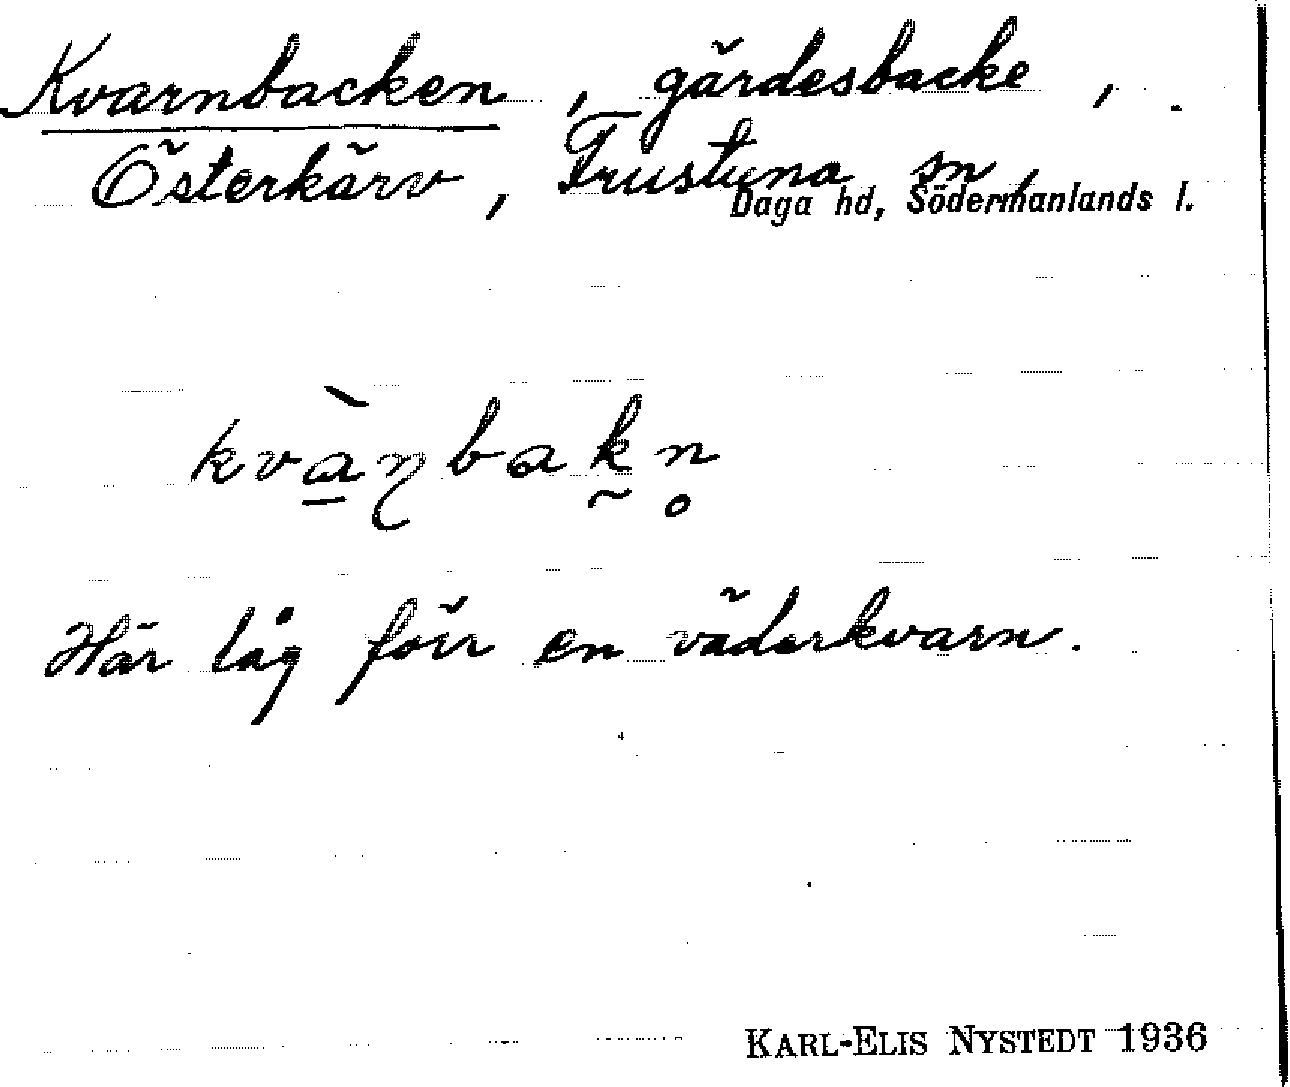 Kvarnbacken, gärdesbacke,
Österkärv, Frustuna sn,
Daga hd, Södermanlands l.
kvà̱ɳbak̰n̥
Här låg förr en väderkvarn.
KARL-ELIS NYSTEDT 1936